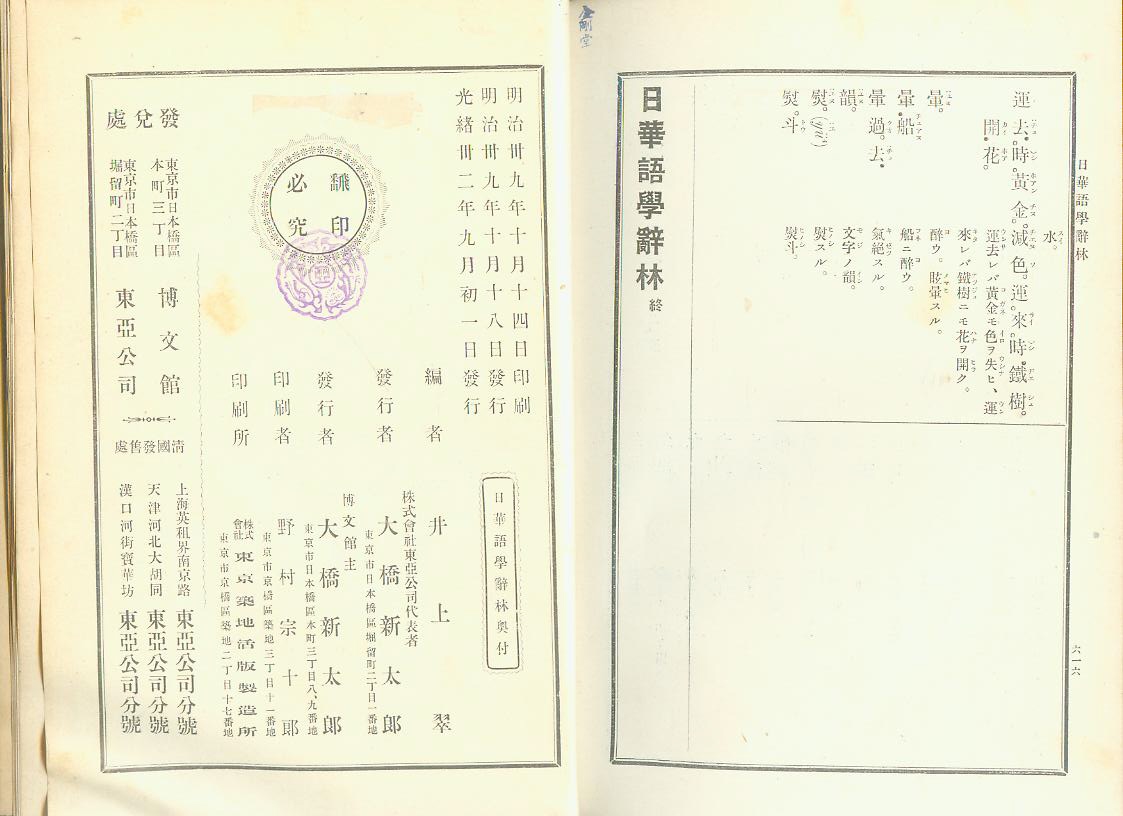 金剛堂
日華語學辭林
六一六
水。
運去。時。黃金。減色。運。來。時。鐵樹。
開。花。
運去レバ黃金モ色ヲ失ヒ、運
來レバ鐵樹ニモ花ヲ開ク。
暈。
醉ウ。眩暈スル。
暈。船
船ニ醉ウ。
暈過。去。
氣絕スル。
韻。
文字ノ韻。
熨。(yüi)
熨スル。
熨。斗
熨斗。
日華語學辭林 終
日華語學辭林奧付
明治卅九年十月十四日印刷
明治卅九年十月十八日發行
光緒卅二年九月初一日發行
飜印必究
編者 井上翠
發行者
株式會社東亞公司代表者
大橋新太郎
東京市日本橋區堀留町二丁目一番地
發行者
博文館主
大橋新太郎
東京市日本橋區本町三丁目八、九番地
印刷者 野村宗十郎
東京市京橋區築地三丁目十一番地
印刷所 株式會社 東京築地活版製造所
東京市京橋區築地二丁目十七番地
發兌處
東京市日本橋區本町三丁目 博文館
東京市日本橋區堀留町二丁目 東亞公司
淸國發售處
上海英租界南京路 東亞公司分號
天津河北大胡同 東亞公司分號
漢口河街寶華坊 東亞公司分號